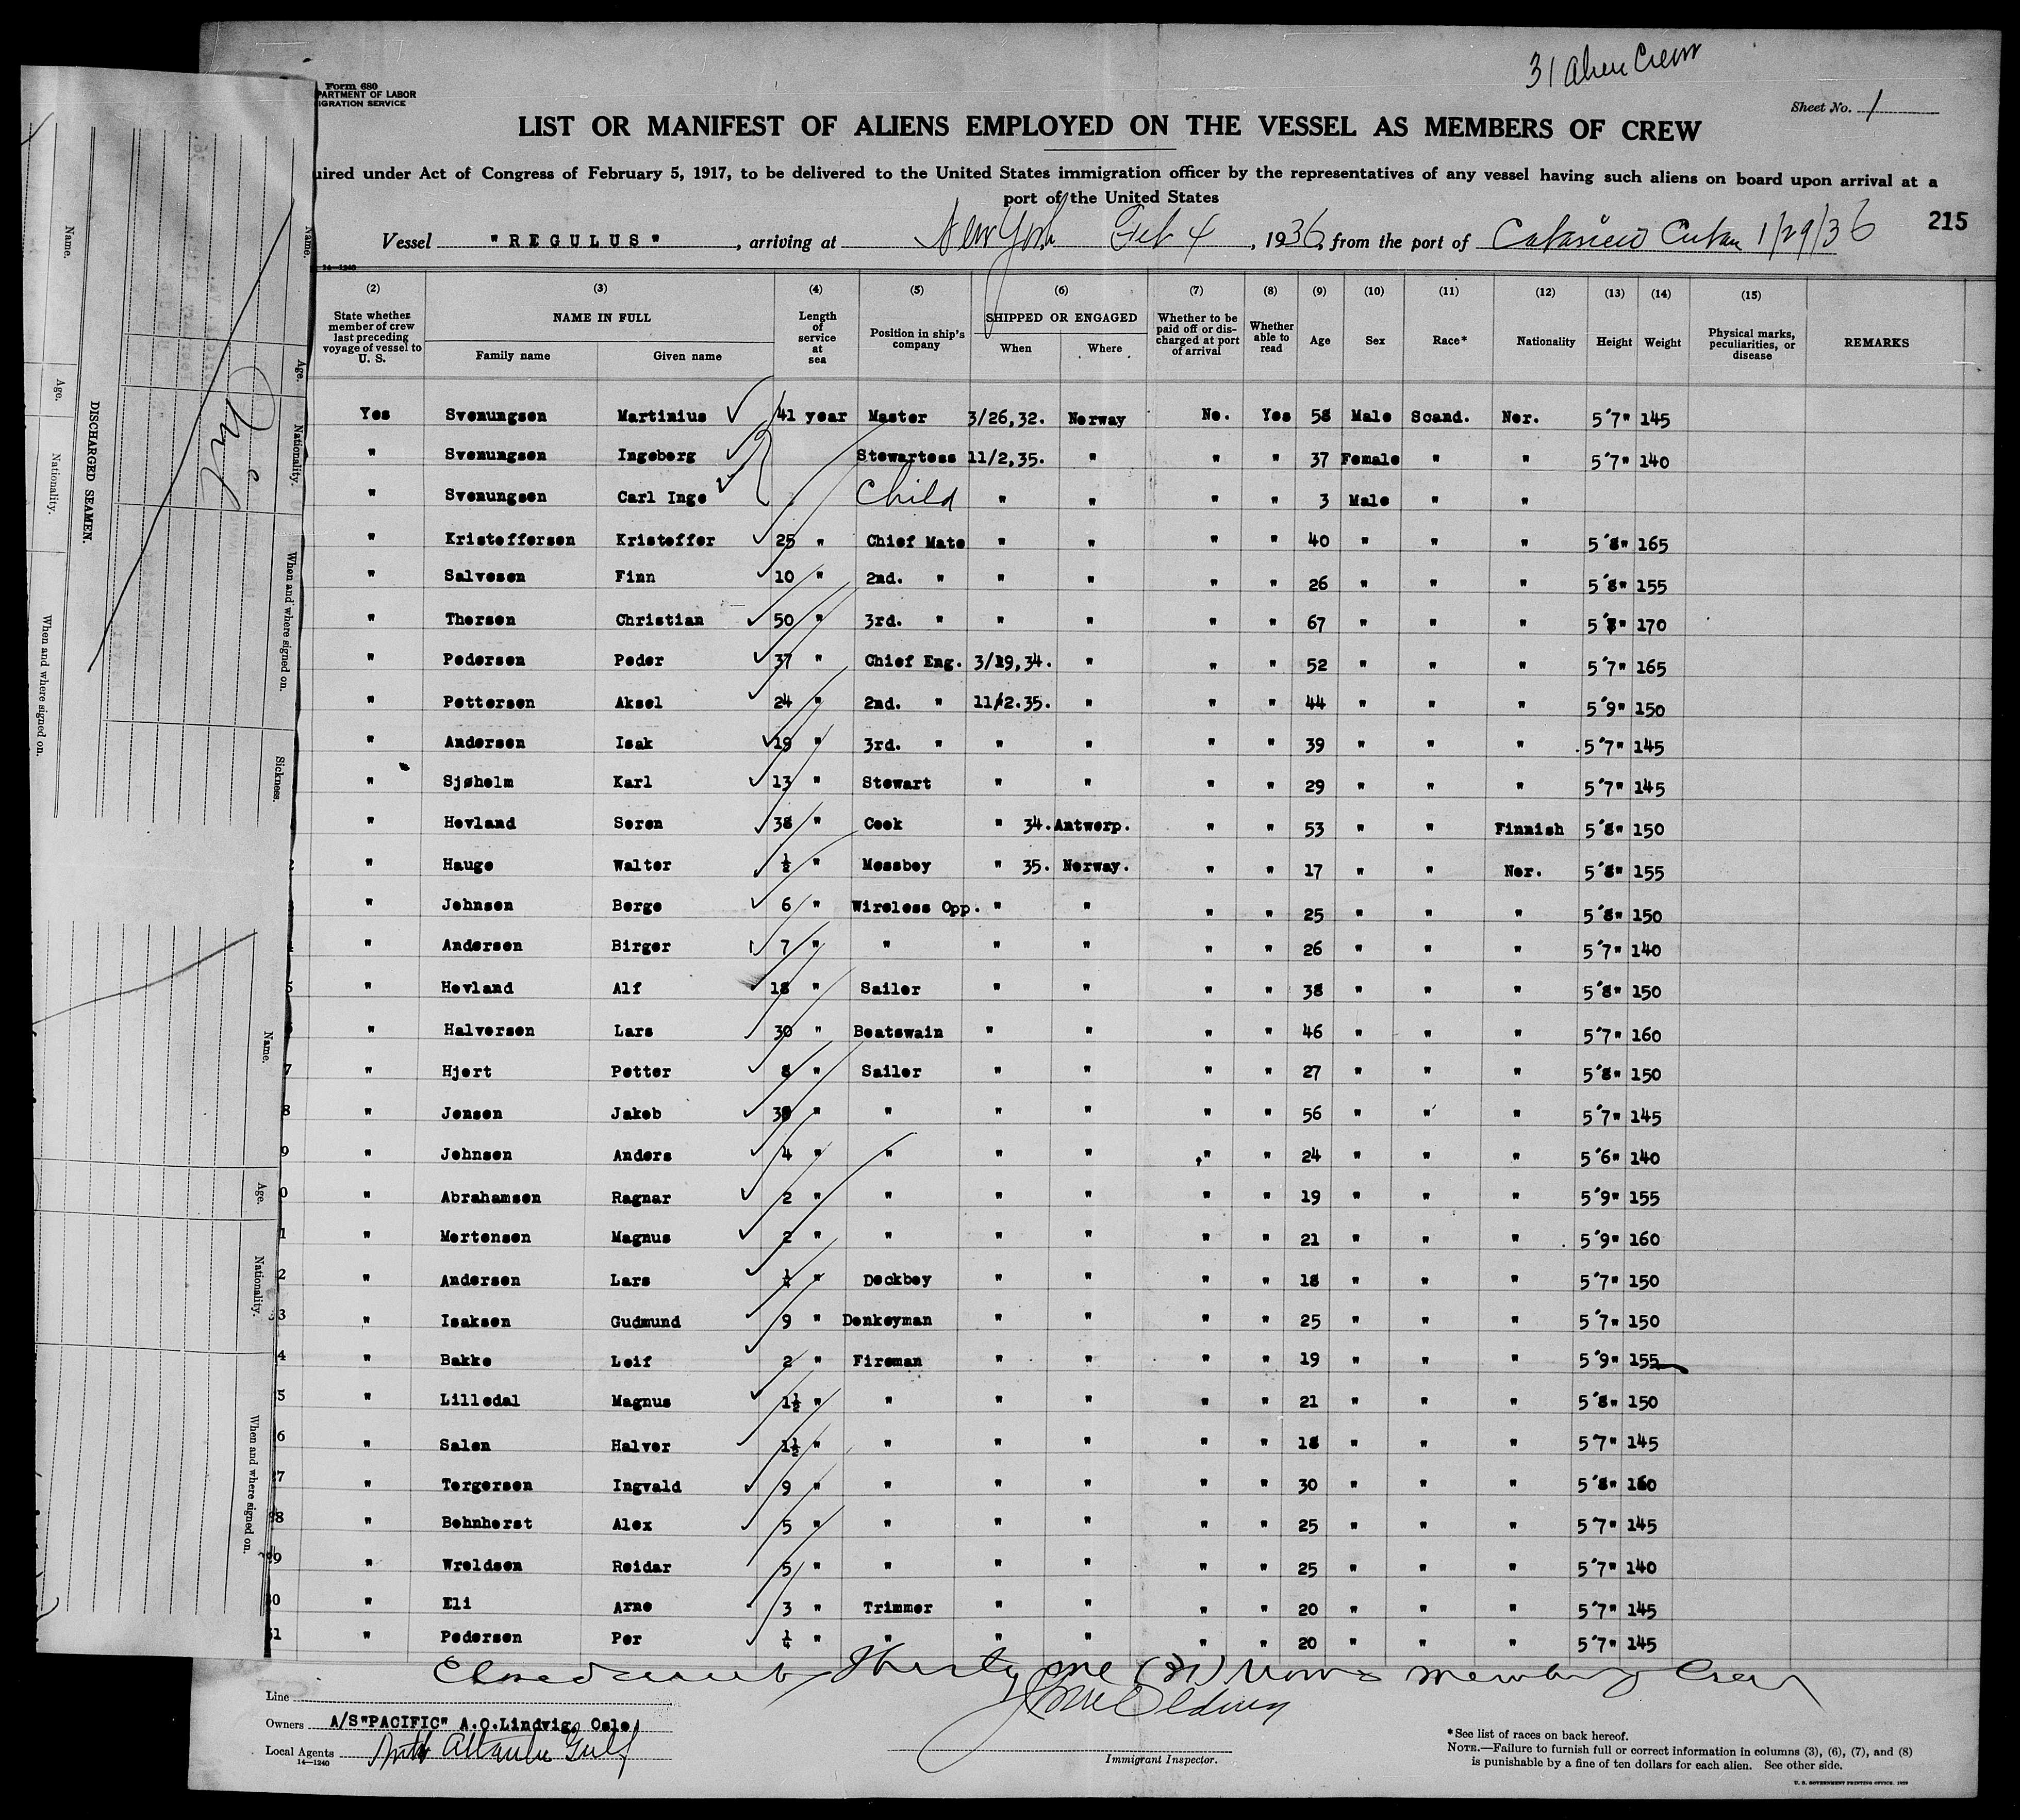 31 Alien Crew
Form 680
PARTMENT OF LABOR
IGRATION SERVICE
Sheet No. 1
LIST OR MANIFEST OF ALIENS EMPLOYED ON THE VESSEL AS MEMBERS OF CREW
uired under Act of Congress of February 5, 1917, to be delivered to the United States immigration officer by the representatives of any vessel having such aliens on board upon arrival at a
port of the United States
215
Vessel "REGULUS", arriving at New York Feb 4, 1936, from the port of Cuba 1/29/36
14—1240
(2) (3) (4) (5) (6) (7) (8) (9) (10) (11) (12) (13) (14) (15)
State whether member of crew last preceding voyage of vessel to U. S. NAME IN FULL Family name Given name Length of service at sea Position in ship's company SHIPPED OR ENGAGED When Where Whether to be paid off or discharged at port of arrival Whether able to read Age Sex Race* Nationality Height Weight Physical marks, peculiarities, or disease REMARKS
Yes Svenungsen Martinius 41 year Master 3/26,32. Norway No. Yes 58 Male Scand. Nor. 5'7" 145
" Svenungsen Ingeborg Stewartess 11/2,35. " " " 37 Female " " 5'7" 140
" Svenungsen Carl Inge Child " " " " 3 Male " "
" Kristoffersen Kristoffer 25 " Chief Mate " " " " 40 " " " 5'8" 165
" Salvesen Finn 10 " 2nd. " " " " " 26 " " " 5'8" 155
" Thorsen Christian 50 " 3rd. " " " " " 67 " " " 5'8" 170
" Pedersen Peder 37 " Chief Eng. 3/19,34. " " " 52 " " " 5'7" 165
" Pettersen Aksel 24 " 2nd. " 11/2.35. " " " 44 " " " 5'9" 150
" Andersen Isak 19 " 3rd. " " " " " 39 " " " 5'7" 145
" Sjøholm Karl 13 " Stewart " " " " 29 " " " 5'7" 145
" Hovland Soren 38 " Cook " 34. Antwerp. " " 53 " " Finnish 5'8" 150
" Hauge Walter ½ " Messboy " 35. Norway. " " 17 " " Nor. 5'8" 155
" Johnsen Borge 6 " Wireless Opp. " " " " 25 " " " 5'8" 150
" Andersen Birger 7 " " " " " " 26 " " " 5'7" 140
" Hovland Alf 18 " Sailor " " " " 38 " " " 5'8" 150
" Halvorsen Lars 30 " Boatswain " " " " 46 " " " 5'7" 160
" Hjort Petter 8 " Sailor " " " " 27 " " " 5'8" 150
" Jensen Jakob 38 " " " " " " 56 " " " 5'7" 145
" Johnsen Anders 4 " " " " " " 24 " " " 5'6" 140
" Abrahamsen Ragnar 2 " " " " " " 19 " " " 5'9" 155
" Mortensen Magnus 2 " " " " " " 21 " " " 5'9" 160
" Andersen Lars ¼ " Deckboy " " " " 18 " " " 5'7" 150
" Isaksen Gudmund 9 " Donkeyman " " " " 25 " " " 5'7" 150
" Bakke Leif 2 " Fireman " " " " 19 " " " 5'9" 155
" Lilledal Magnus 1½ " " " " " " 21 " " " 5'8" 150
" Salen Halvor 1½ " " " " " " 18 " " " 5'7" 145
" Torgersen Ingvald 9 " " " " " " 30 " " " 5'8" 160
" Bohnhorst Alex 5 " " " " " " 25 " " " 5'7" 145
" Wroldsen Reidar 5 " " " " " " 25 " " " 5'7" 140
" Eli Arne 3 " Trimmer " " " " 20 " " " 5'7" 145
" Pedersen Per ¼ " " " " " " 20 " " " 5'7" 145
Thirty one (31) Crew
Line
Owners A/S"PACIFIC" A.O.Lindvig, Oslo
Local Agents North Atlantic Gulf
14—1240
Immigrant Inspector.
*See list of races on back hereof.
NOTE.—Failure to furnish full or correct information in columns (3), (6), (7), and (8)
is punishable by a fine of ten dollars for each alien. See other side.
U. S. GOVERNMENT PRINTING OFFICE. 1929
DISCHARGED SEAMEN.
Name.
Age.
Nationality.
When and where signed on.
Name.
Age.
Nationality.
When and where signed on.
Sickness.
Name.
Age.
Nationality.
When and where signed on.